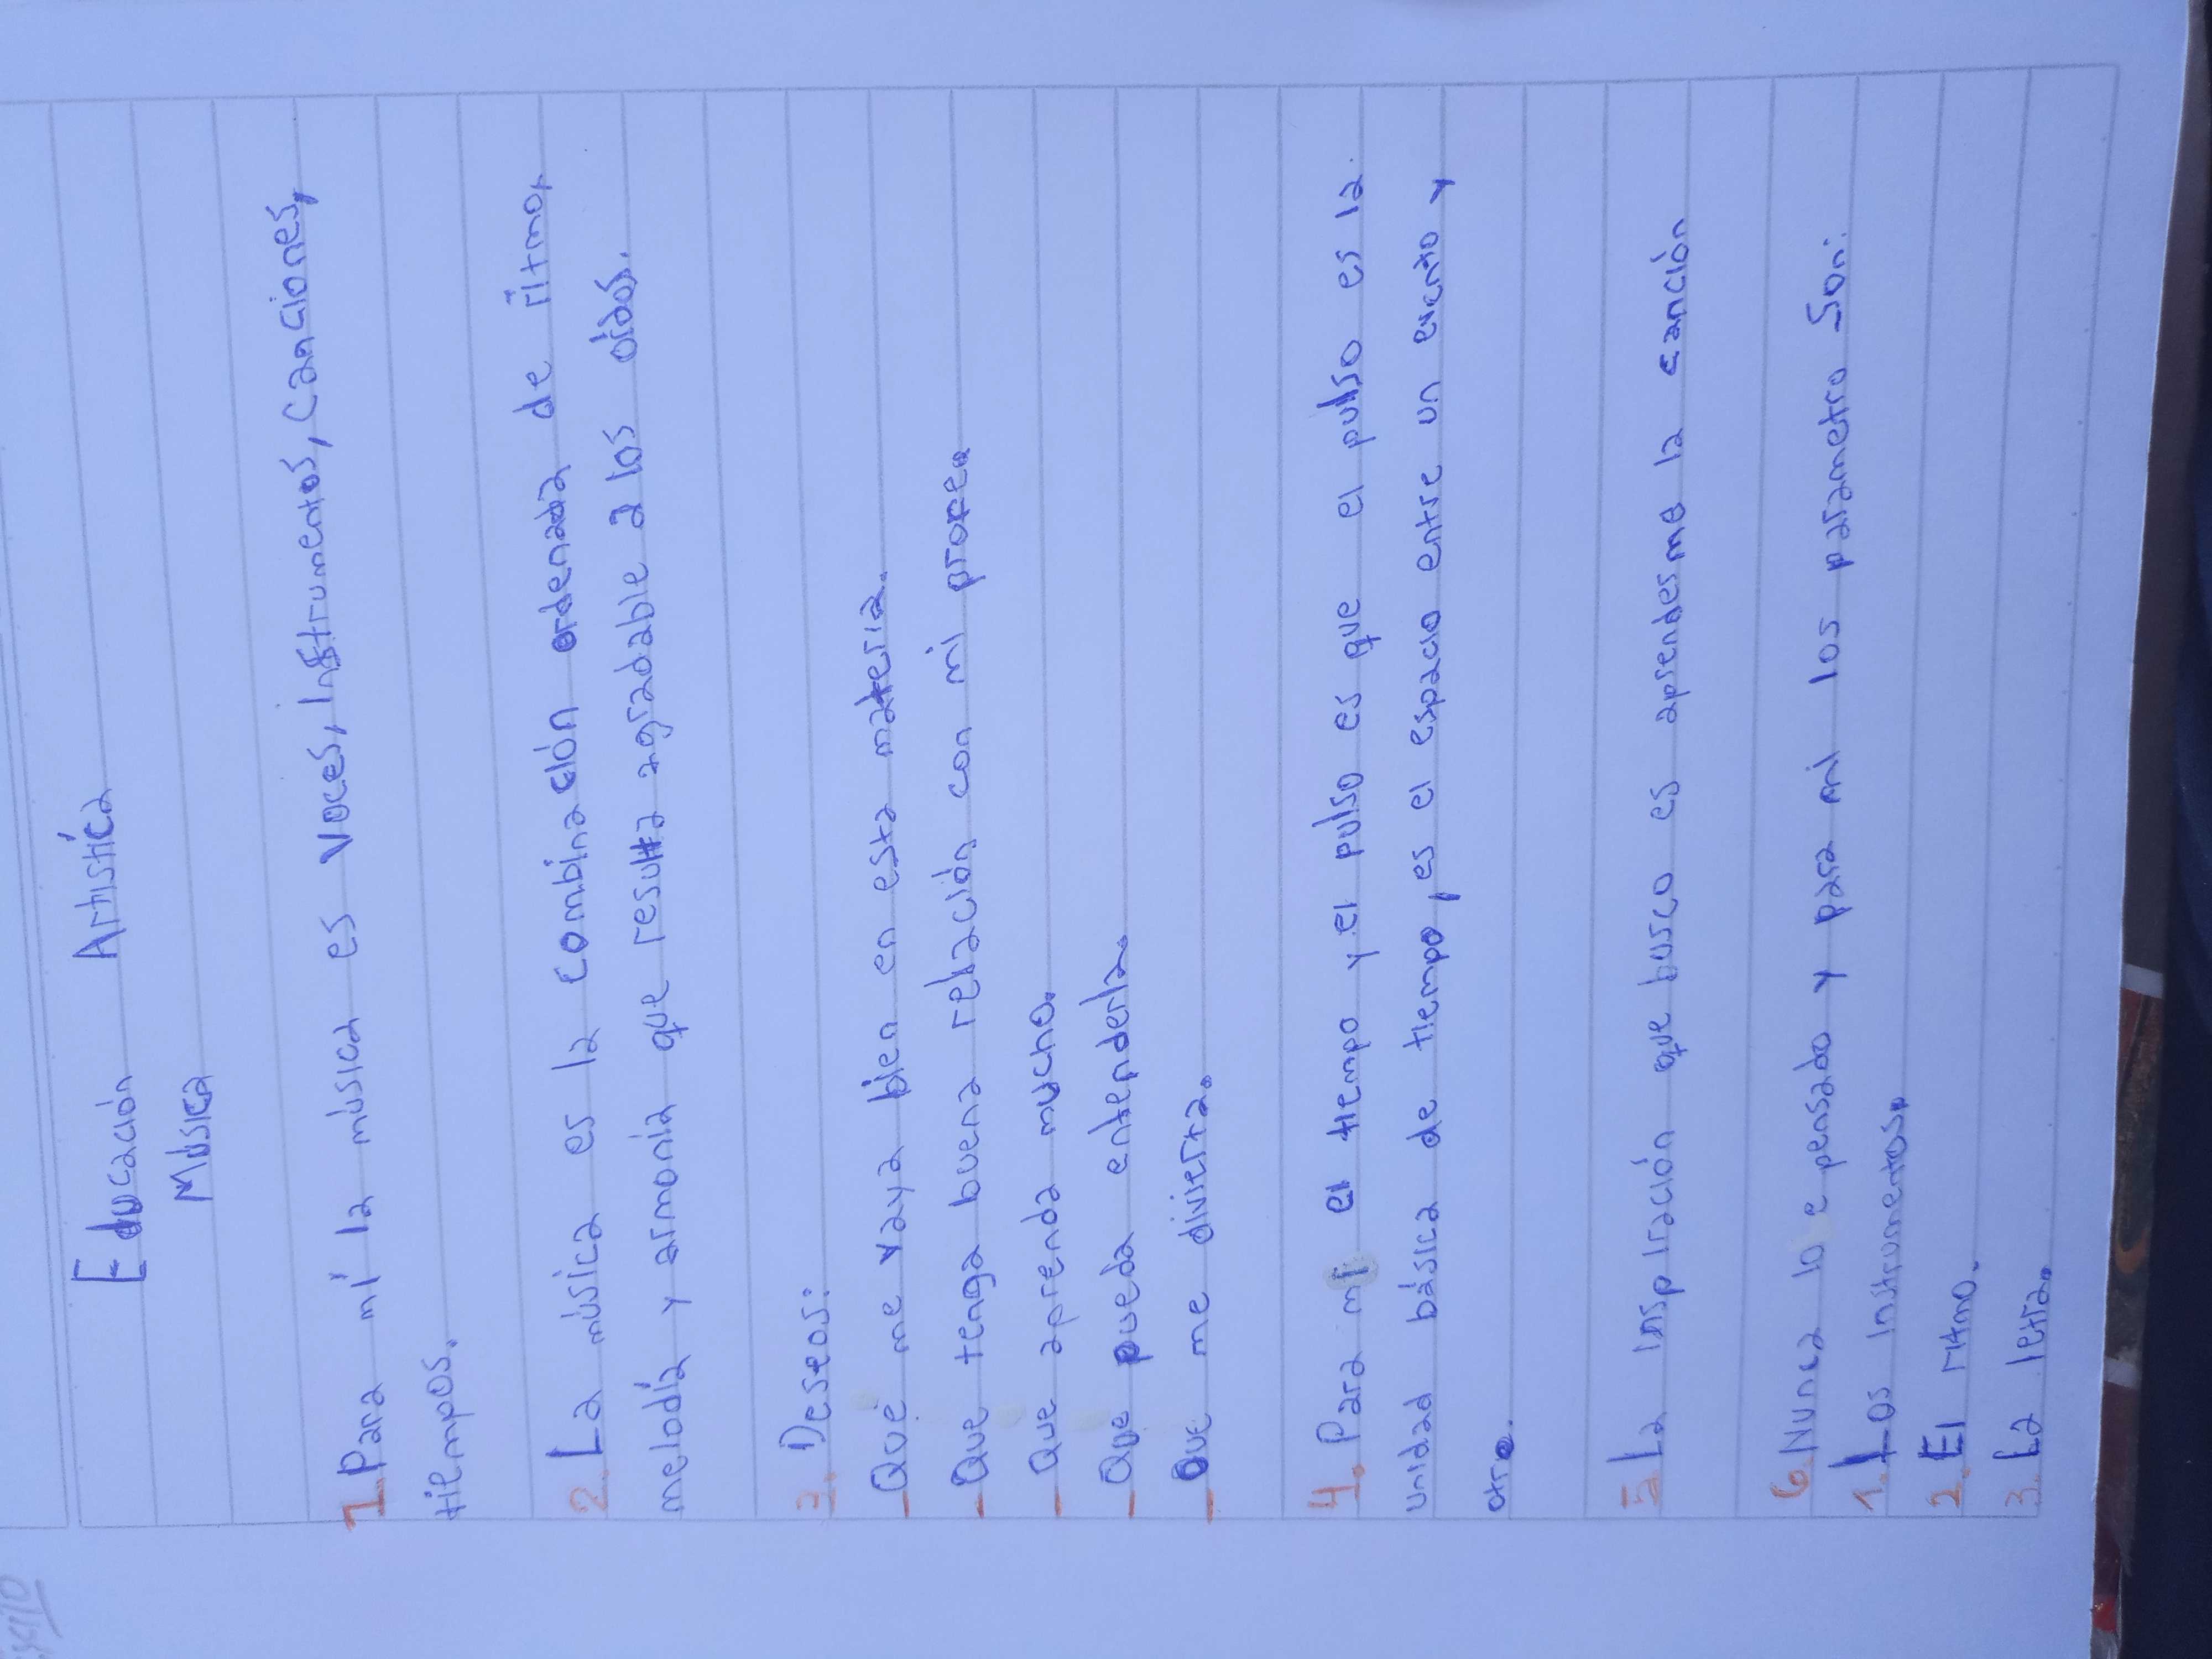 Educación Artistíca
Música
1. Para mí la música es voces, instrumentos, canciones,
tiempos.
2. La música es la combinación ordenada de ritmo,
melodía y armonía que resulta agradable a los oídos.
3. Deseos:
- Que me vaya bien en esta materia.
- Que tenga buena relación con mi profe.
- Que aprenda mucho.
- Que pueda entenderla.
- Que me divierta.
4. Para mi el tiempo y el pulso es que el pulso es la
unidad básica de tiempo, es el espacio entre un evento y
otro.
5. La inspiración que busco es aprenderme la canción
6. Nunca lo e pensado y para mi los parametro son:
1. Los instrumentos.
2. El ritmo.
3. La letra.